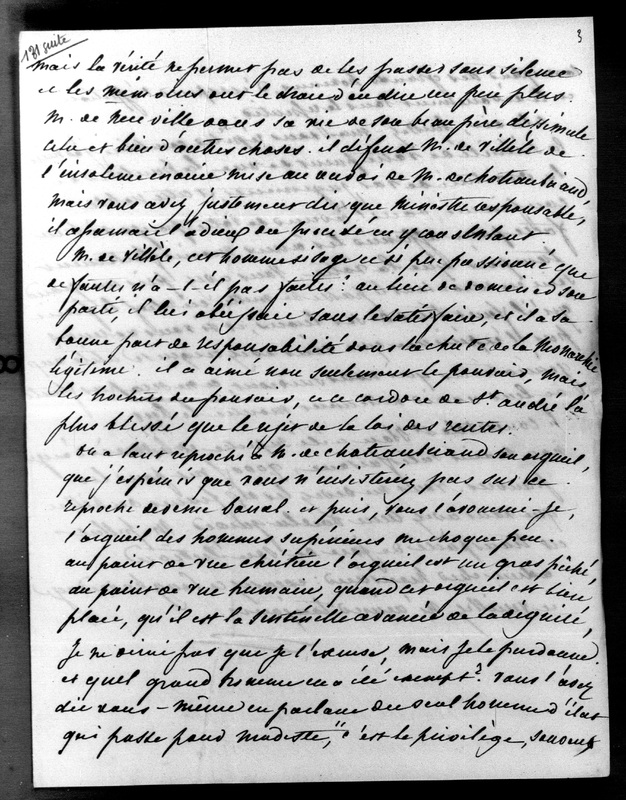 131 suite
3
mais la vérité ne permet pas de les passer sous silence
et les mémoires ont le droit d'en dire un peu plus.
M. de Neuville dans sa vie de son beau père dissimule
cela et bien d'autres choses. il défend M. de Villèle de
l'insolence inouïe mise au renvoi de M. de chateaubriand,
mais vous avez justement dit que ministre responsable,
il assumait l'odieux du procédé en y consentant.
M. de Villèle, cet homme si sage et si peu passionné que
de fautes n'a-t-il pas faites? au lieu de dominer son
parti, il lui obéissait sans le satisfaire, et il a sa
bonne part de responsabilité dans la chute de la Monarchie
légitime. il a aimé non seulement le pouvoir, mais
les hochets du pouvoir, et ce cordon de St. andré l'a
plus blessé que le rejet de la loi des rentes.
on a tant reproché à M. de chateaubriand son orgueil,
que j'espérais que vous n'insisteriez pas sur ce
reproche devenu banal. et puis, vous l'avouerai-je,
l'orgueil des hommes supérieurs me choque peu.
au point de vue chrétien l'orgueil est un gros péché,
au point de vue humain, quand cet orgueil est bien
placé, qu'il est la sentinelle avancée de la dignité,
Je ne dirai pas que je l'excuse, mais je le pardonne.
et quel grand homme en a été exempt? vous l'avez
dit vous-même en parlant du seul homme d'état
qui passe pour modeste, "c'est le privilège, souvent